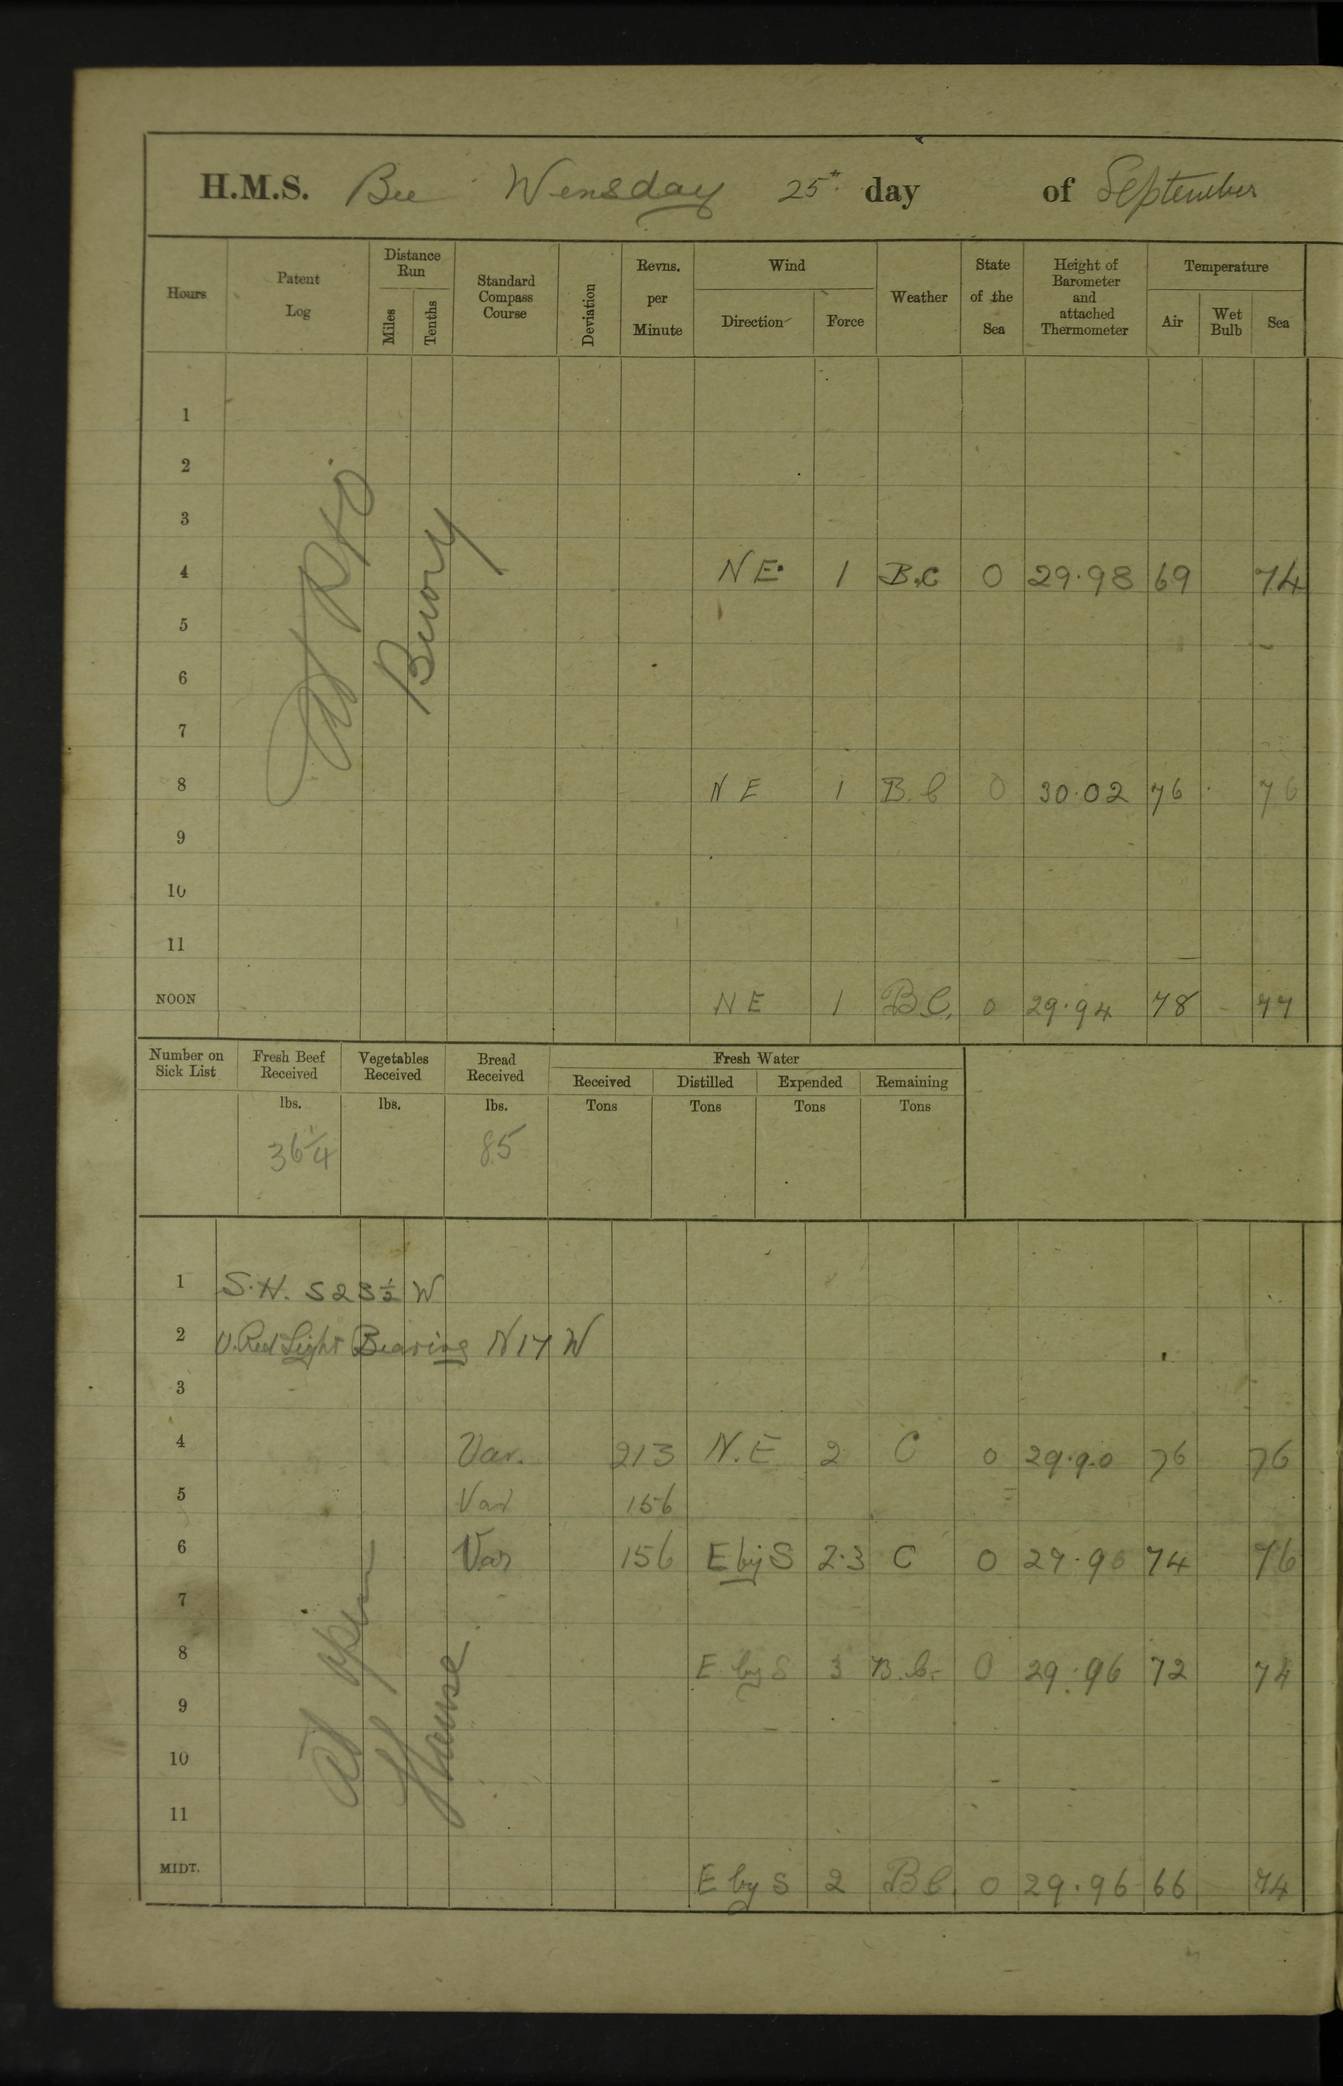 H.M.S. Bee Wensday 25th day of September
Hours Patent Log Distance Run Miles Tenths Standard Compass Course Deviation Revns. per Minute Wind Direction Force Weather State of the Sea Height of Barometer and attached Thermometer Temperature Air Wet Bulb Sea
1
2
3
4 NE 1 B.C 0 29.98 69 74
5
6
7
8 NE 1 B.C 0 30.02 76 76
9
10
11
NOON NE 1 B.C. 0 29.94 78 77
At No
Buoy
Number on Sick List Fresh Beef Received Vegetables Received Bread Received Fresh Water
Received Distilled Expended Remaining
lbs. lbs. lbs. Tons Tons Tons Tons
36 1/4 85
1 S.H. S 23 1/2 W
2 O. Red Light Bearing N 17 W
3
4 Var. 213 N.E 2 C 0 29.90 76 76
5 Var 156
6 Var 156 E by S 2.3 C 0 29.90 74 76
7
8 E by S 3 B.C. 0 29.96 72 74
9
10
11
MIDT. E by S 2 B C. 0 29.96 66 74
At open
Hawse